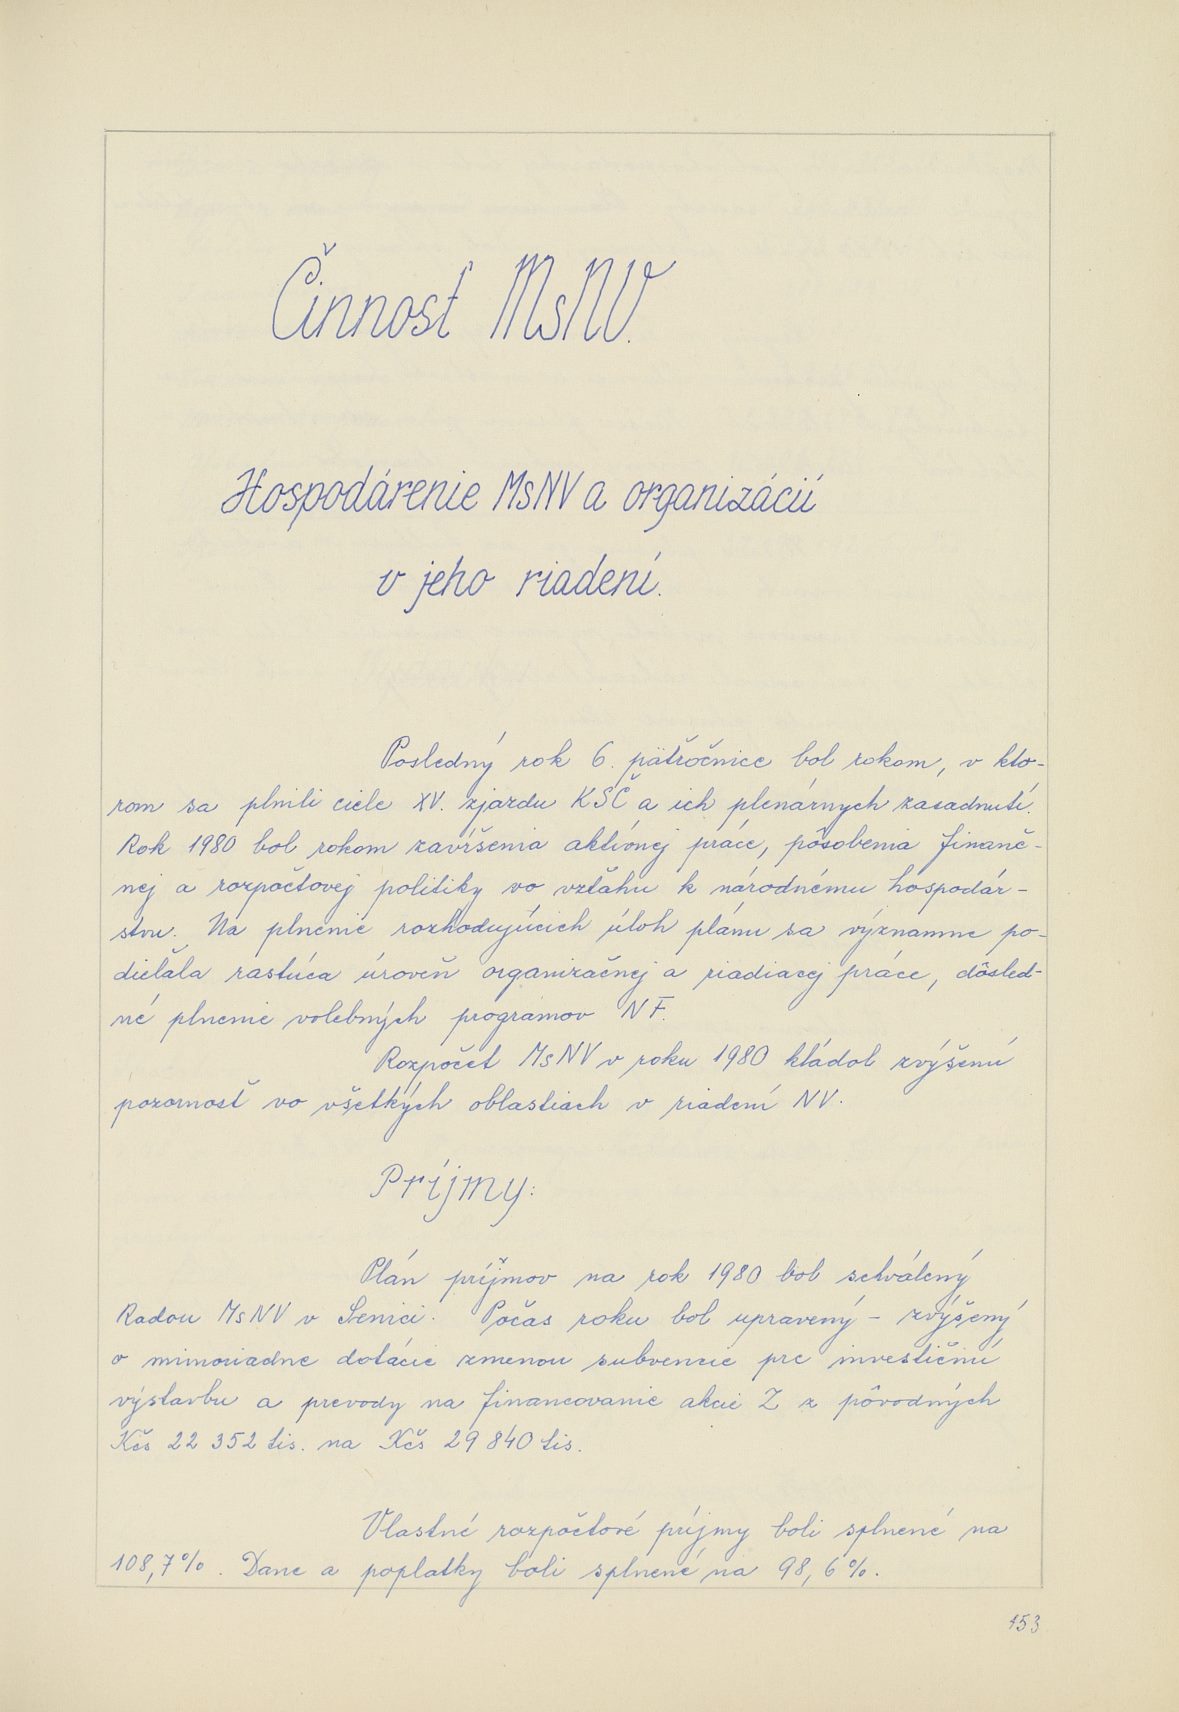 Činnosť MsNV.
Hospodárenie MsNV a organizácií
v jeho riadení.
Posledný rok 6. päťročnice bol rokom, v kto-
rom sa plnili ciele XV. zjazdu KSČ a ich plenárnych zasadnutí.
Rok 1980 bol rokom zavŕšenia aktívnej práce, pôsobenia finanč-
nej a rozpočtovej politiky vo vzťahu k národnému hospodár-
stvu. Na plnenie rozhodujúcich úloh plánu sa významne po-
dieľala rastúca úroveň organizačnej a riadiacej práce, dôsled-
né plnenie volebných programov NF.
Rozpočet MsNV v roku 1980 kládol zvýšenú
pozornosť vo všetkých oblastiach v riadení NV.
Príjmy:
Plán príjmov na rok 1980 bol schválený
Radou MsNV v Senici. Počas roku bol upravený - zvýšený
o mimoriadne dotácie zmenou subvencie pre investičnú
výstavbu a prevody na financovanie akcie Z z pôvodných
Kčs 22 352 tis. na Kčs 29 840 tis.
Vlastné rozpočtové príjmy boli splnené na
108,7%. Dane a poplatky boli splnené na 98,6%.
153